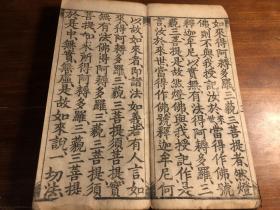 如來得阿耨多羅三藐三菩提者然燈
佛則不與我授記作是言汝於來世當得作佛號
釋迦牟尼以實無有法得阿耨多羅三
藐三菩提是故然燈佛與我授記作是
言汝於來世當得作佛號釋迦牟尼何
以故如來者即諸法如義若有人言如
來得阿耨多羅三藐三菩提須菩提實
無有法佛得阿耨多羅三藐三菩提須
菩提如來所得阿耨多羅三藐三菩提
於是中無實無虛是故如來說一切法